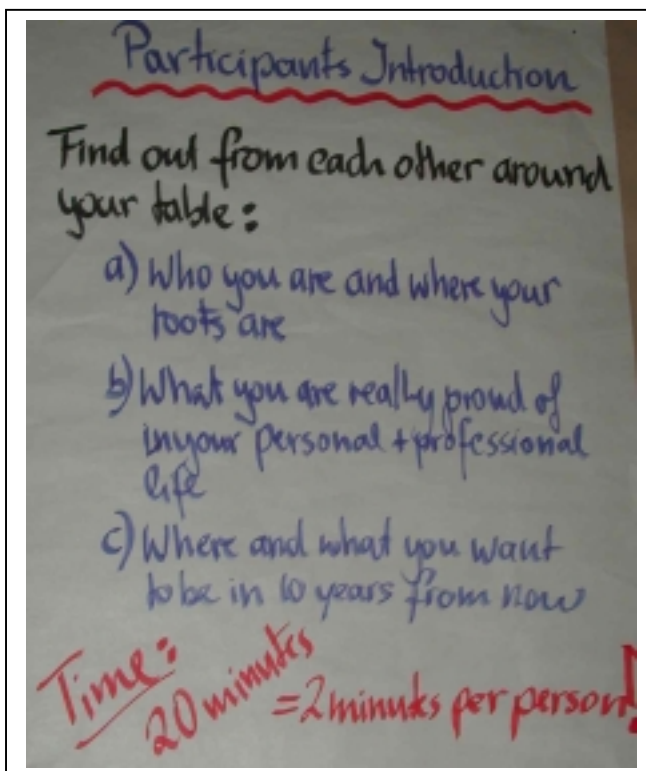 Participants Introduction
Find out from each other around
your table:
a) Who you are and where your
roots are
b) What you are really proud of
in your personal + professional
life
c) Where and what you want
to be in 10 years from now
Time:
20 minutes
= 2 minutes per person!